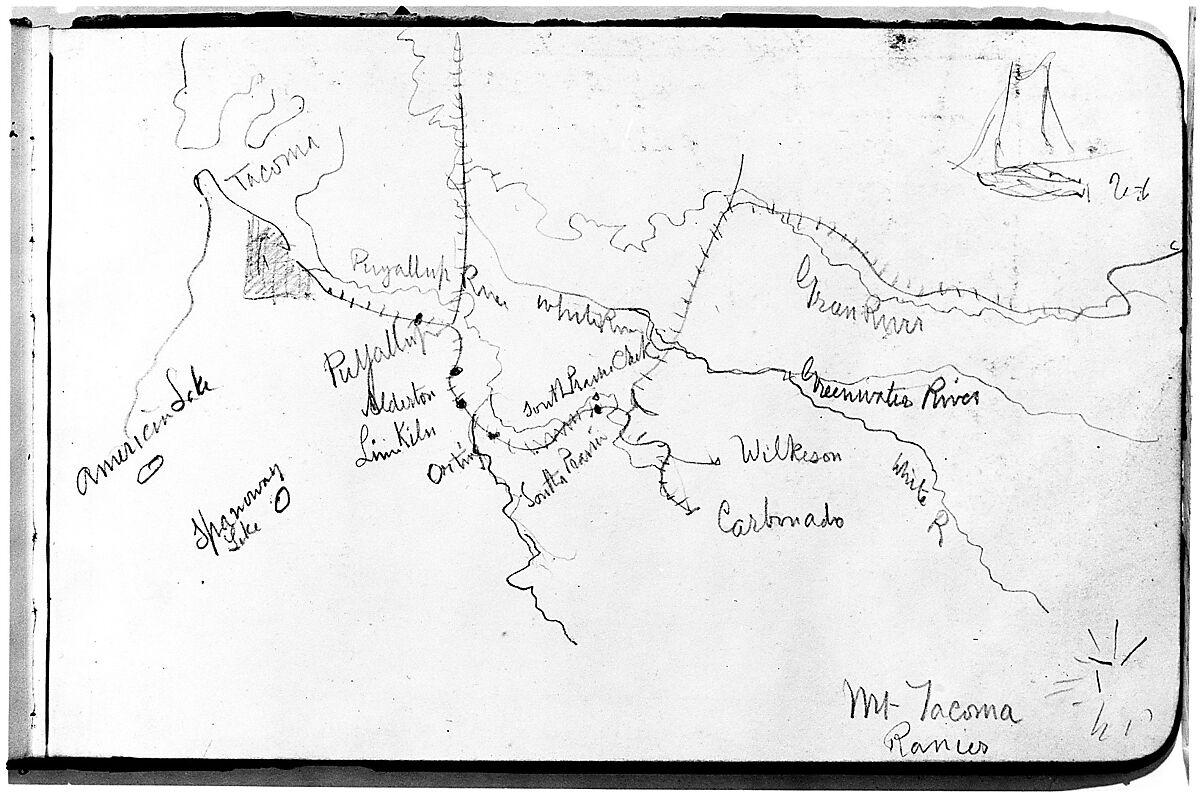 Tacoma
Puyallup River
White River
Gran River
Puyallup
South Prairie Creek
Greenwater River
American Lake
Alderton
Lime Kiln
Orting
South Prairie
Wilkeson
White R
Spanoway
Lake
Carbonado
Mt Tacoma
Ranier